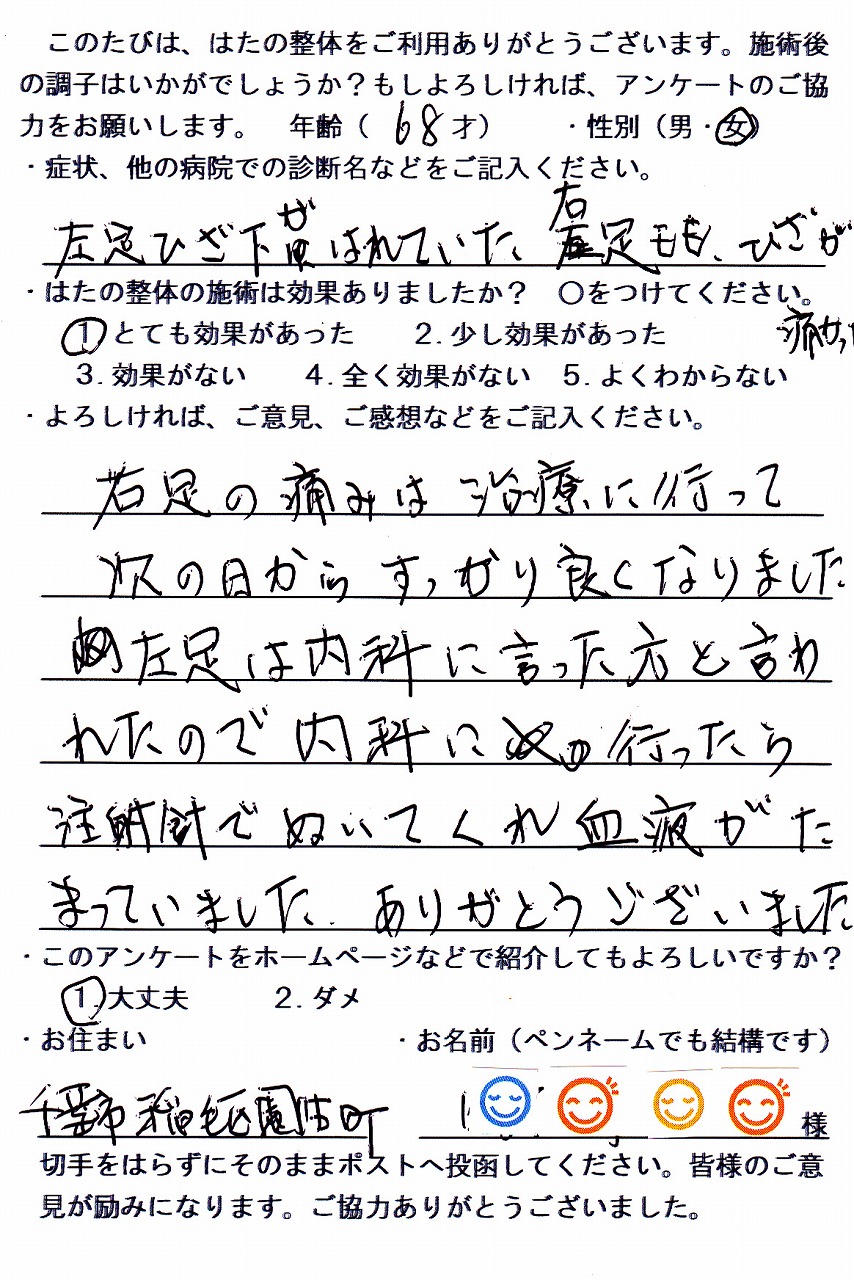 このたびは、はたの整体をご利用ありがとうございます。施術後
の調子はいかがでしょうか?もしよろしければ、アンケートのご協
力をお願いします。 年齢（ 68 才） ・性別（男・女）
・症状、他の病院での診断名などをご記入ください。
左足ひざ下がはれていた 右足もも、ひざが
痛かった
・はたの整体の施術は効果ありましたか? ○をつけてください。
1 とても効果があった 2.少し効果があった
3.効果がない 4.全く効果がない 5.よくわからない
・よろしければ、ご意見、ご感想などをご記入ください。
右足の痛みは治療に行って
次の日からすっかり良くなりました
左足は内科に言った方と言わ
れたので内科に行ったら
注射針でぬいてくれ血液がた
まっていました. ありがとうございました
・このアンケートをホームページなどで紹介してもよろしいですか?
1.大丈夫 2.ダメ
・お住まい ・お名前（ペンネームでも結構です）
千葉市稲毛区園生町 様
切手をはらずにそのままポストへ投函してください。皆様のご意
見が励みになります。ご協力ありがとうございました。